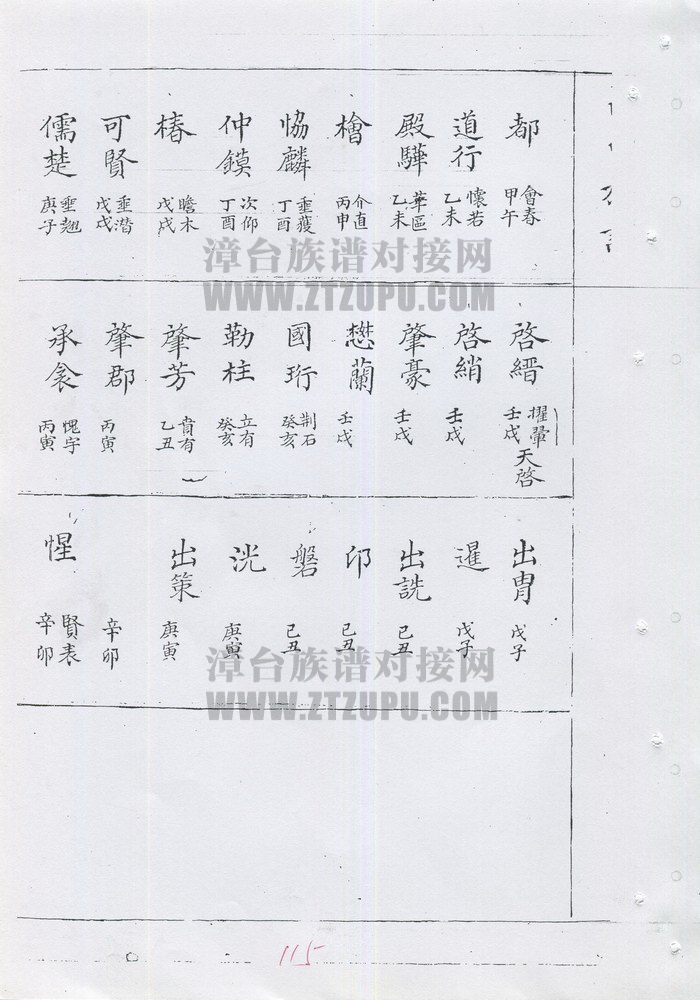 都 會春 甲午
道行 懷若 乙未
殿驊 華區 乙未
檜 介直 丙申
協麟 垂獲 丁酉
仲鏌 次仰 丁酉
椿 瞻木 戊戌
可賢 垂潜 戊戌
儒楚 垂翘 庚子
漳台族谱对接网
WWW.ZTZUPU.COM
啓縉 擢鞏 壬戌 天啓
啓綃 壬戌
肇豪 壬戌
懋蘭 壬戌
國珩 荆石 癸亥
勒柱 立有 癸亥
肇芳 賁有 乙丑
肇郡 丙寅
承衾 愧宇 丙寅
出胄 戊子
暹 戊子
出詵 己丑
卬 己丑
磐 己丑
洸 庚寅
出策 庚寅
辛卯
惺 賢表 辛卯
漳台族谱对接网
WWW.ZTZUPU.COM
115